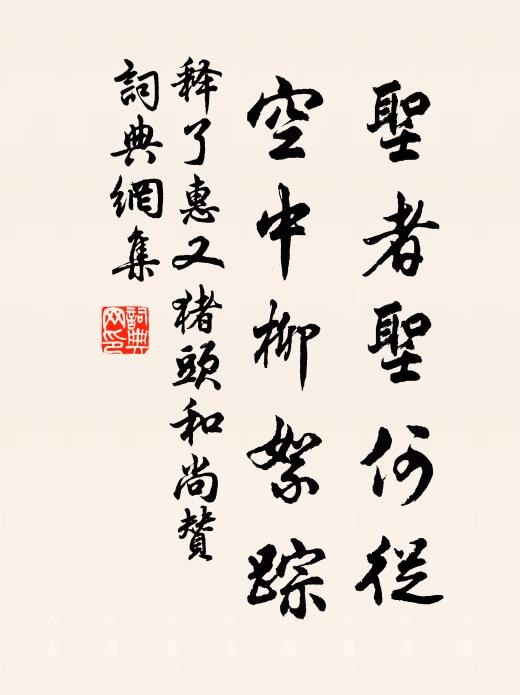 聖者聖何從
空中柳絮踪
释了惠又猪頭和尚贊
詞典網集
詞典
网印